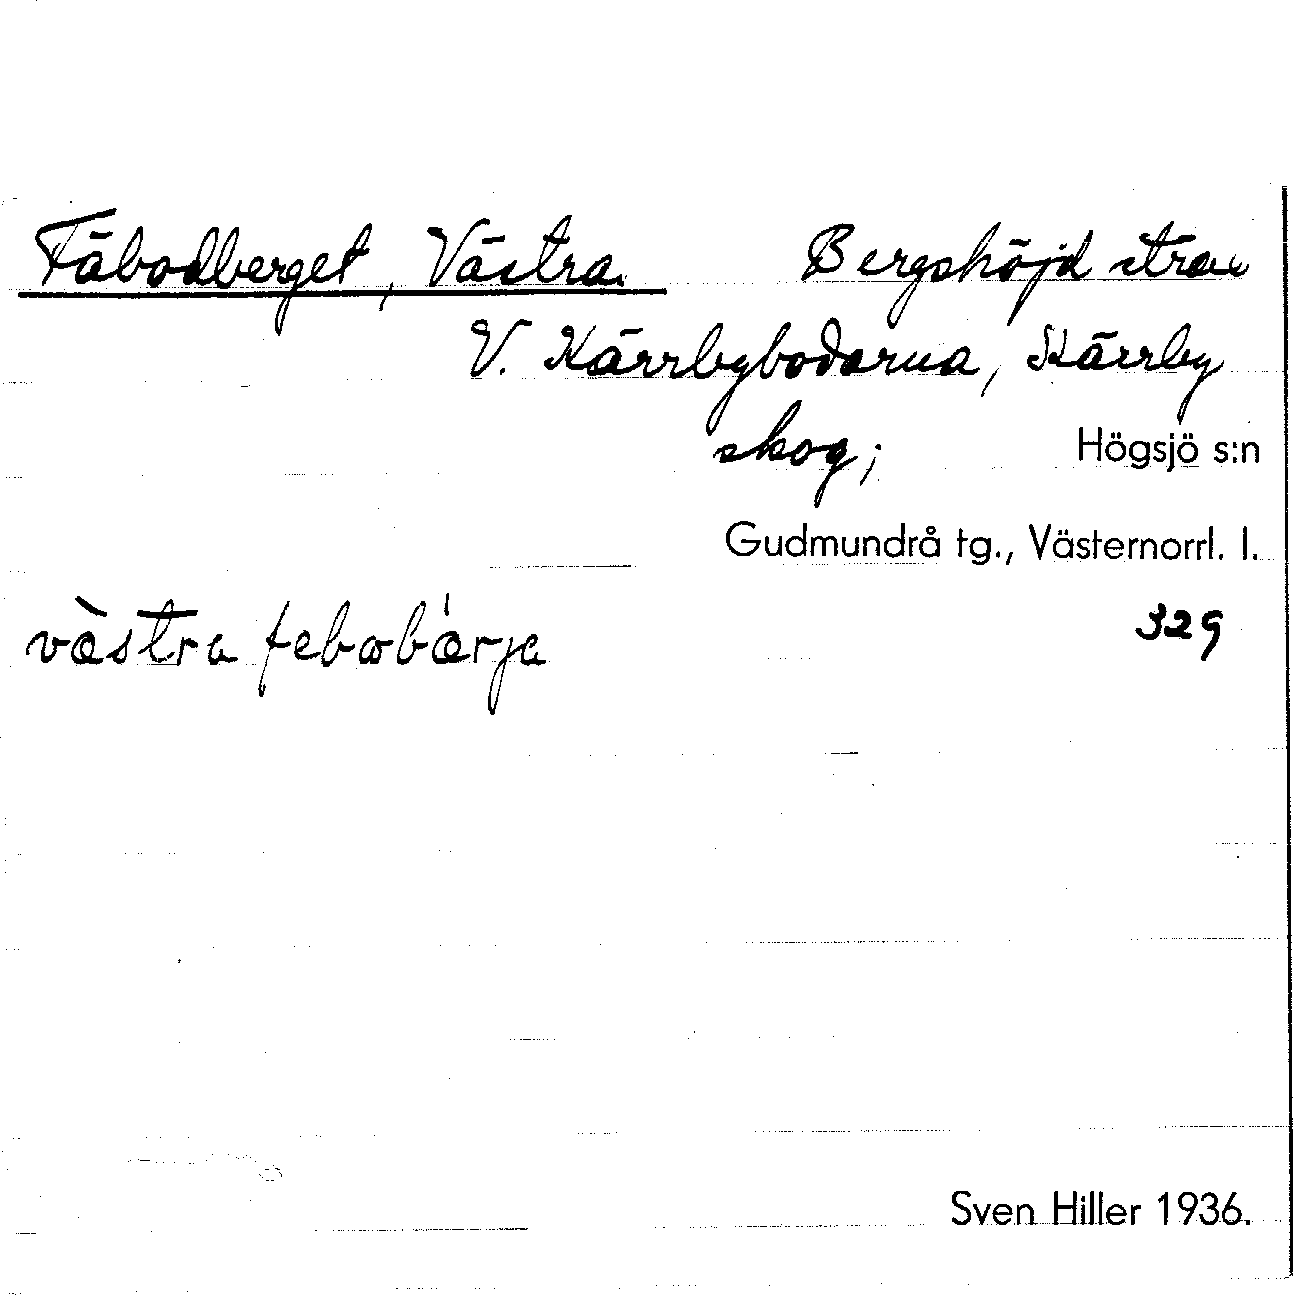 Fäbodberget, Västra. Bergshöjd strax
V. Kärrbybodarna, Kärrby
skog; Högsjö s:n
Gudmundrå tg., Västernorrl. l.
västra febωbærja 329
Sven Hiller 1936.